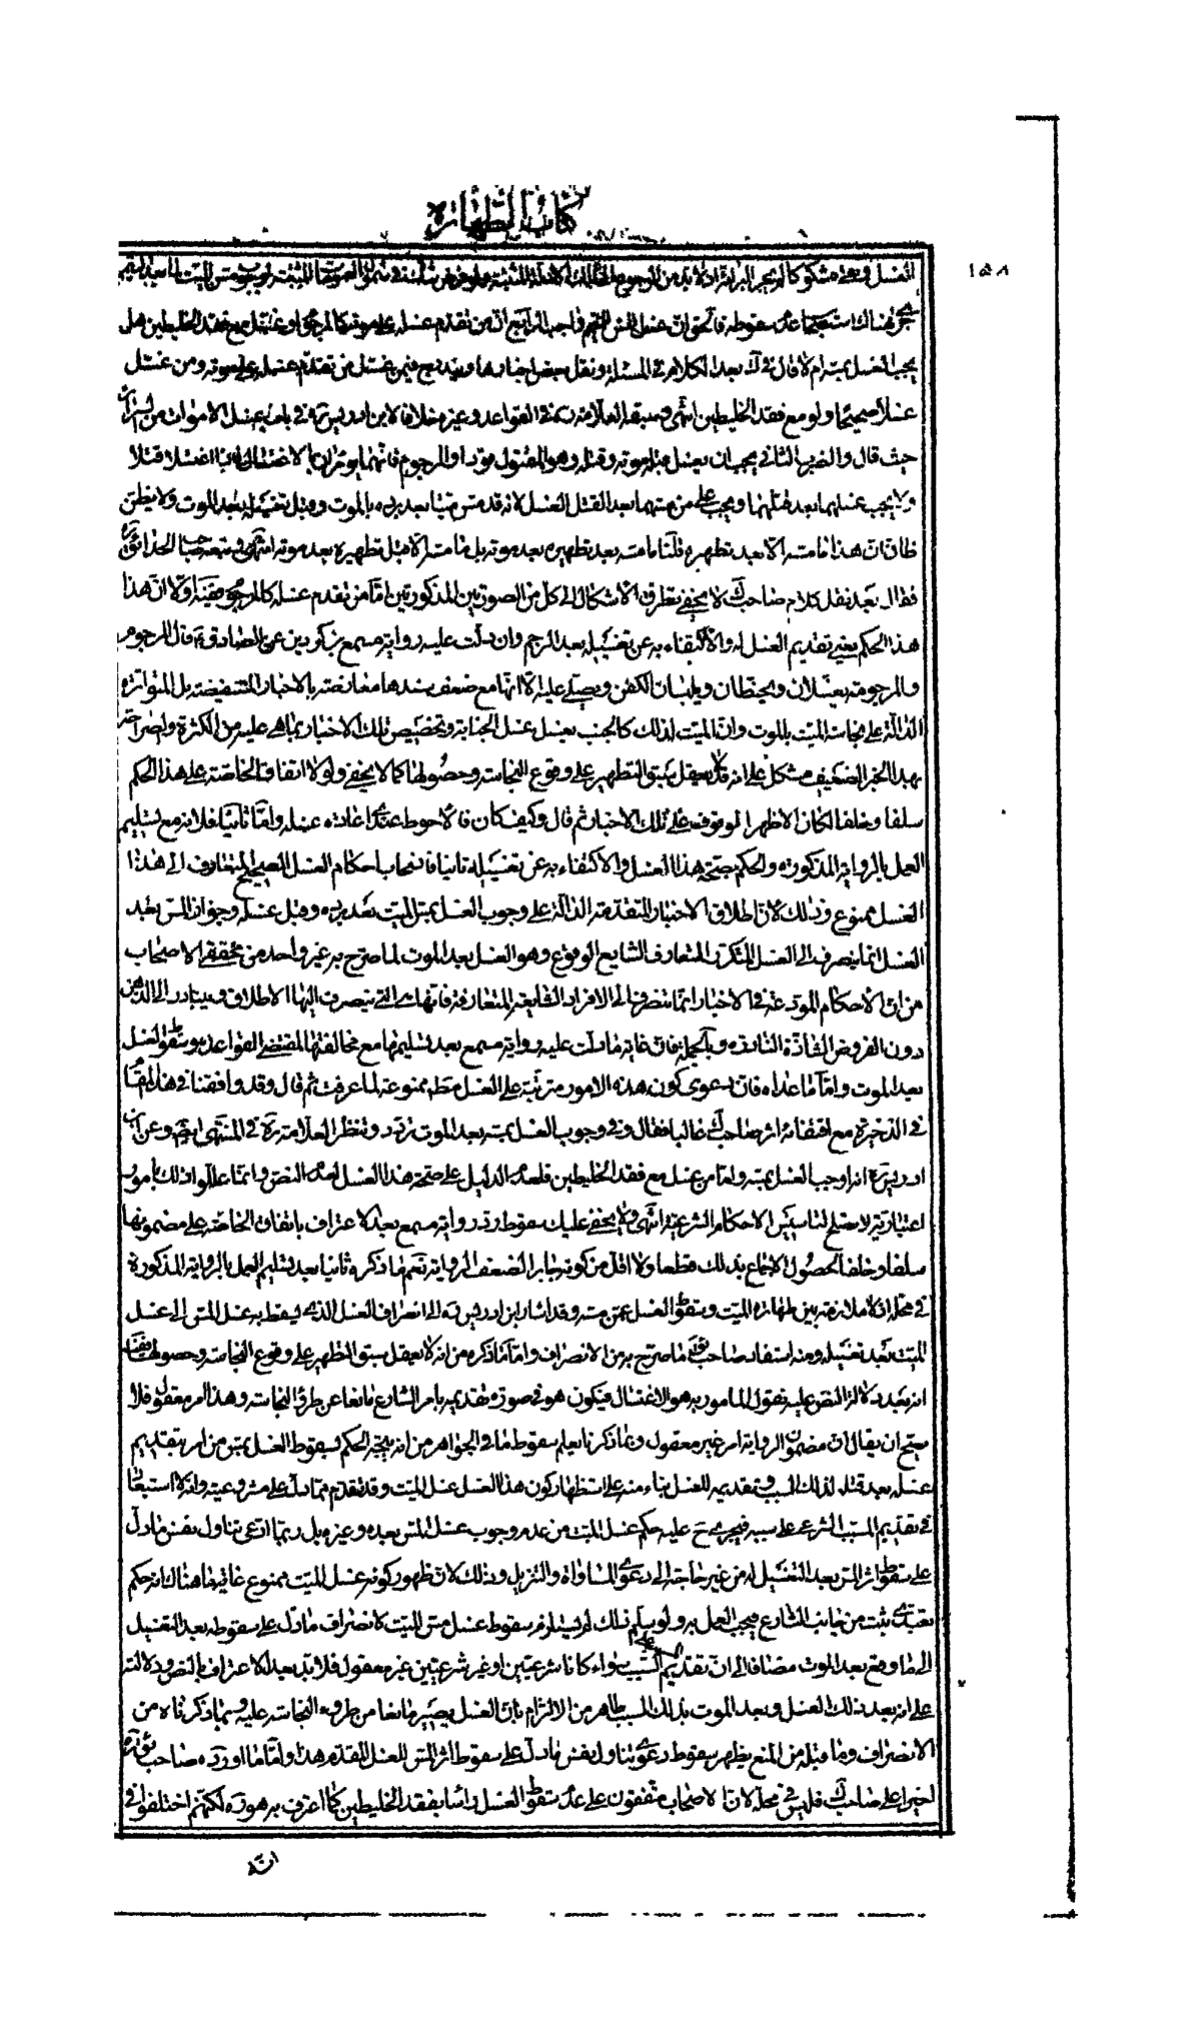 كتاب الطهارة
١٥٨
الغسل في حقه مشكوكا لم يجر البراءة اذ لا بد من الرجوع الى الأدلة المثبتة لوجوبه بمس الميت بعد
هناك استصحاب عدم سقوطه فالحق ان غسل المس الرابع ان من تقدم غسله على موته كالمرجوم او غسل مع فقد الخليطين هل
يجب الغسل بمسه ام لا قال في ك بعد الكلام في المسئلة ونقل بعض اخبارها ويندرج فيمن غسل من تقدم غسله على موته ومن غسل
غسلا صحيحا ولو مع فقد الخليطين انتهى وسبقه العلامة ره في القواعد وغيره خلافا لابن ادريس ره في باب غسل الاموات من السرائر
حيث قال والضرب الثاني يجب ان يغسل قبل موته وقتله وهو المقتول قودا والمرجوم فانهما يؤمران بالاغتسال فاذا اغتسلا قتلا
ولا يجب غسلهما بعد قتلهما ويجب على من مسهما بعد القتل الغسل لانه قد مس ميتا بعد برده بالموت وقبل تغسيله بعد الموت ولا يظن
ظان ان هذا ما مسه الا بعد تطهيره قلنا ما مسه بعد تطهيره بعد موته بل ما مسه الا قبل تطهيره بعد موته انتهى وتبعه صاحب الحدائق ره
فقال بعد نقل كلام صاحب ك لا يخفى تطرق الاشكال الى كل من الصورتين المذكورتين اما من تقدم غسله كالمرجوم ففيه اولا ان هذا
هذا الحكم يعني تقديم الغسل له والاكتفاء به عن تغسيله بعد الرجم وان دلت عليه رواية مسمع بن كردين عن الصادق ع قال المرجوم
والمرجومة يغسلان ويحنطان ويلبسان الكفن ويصلى عليه الا انها مع ضعف سندها معارضة بالاخبار المستفيضة بل المتواترة
الدالة على نجاسة الميت بالموت وان الميت لذلك كالجنب يغسل غسل الجنابة وتخصيص تلك الاخبار بما هي عليه من الكثرة والصراحة
بهذا الخبر الضعيف مشكل على انه لا يعقل سبق التطهير على وقوع النجاسة وحصولها كما لا يخفى ولولا اتفاق الخاصة على هذا الحكم
سلفا وخلفا لكان الاظهر الوقوف على تلك الاخبار ثم قال وكيف كان فالاحوط عندي اعادة غسله واما ثانيا فلانه مع تسليم
العمل بالرواية المذكورة والحكم بصحة هذا الغسل والاكتفاء به عن تغسيله ثانيا فانسحاب احكام الغسل الصحيح المتعارف الى هذا
الغسل ممنوع وذلك لان اطلاق الاخبار المتقدمة الدالة على وجوب الغسل بمس الميت بعد برده وقبل غسله وجواز المس بعد
الغسل انما ينصرف الى الغسل المتكرر المتعارف الشايع الوقوع وهو الغسل بعد الموت لما صرح به غير واحد من محققي الاصحاب
من ان الاحكام المودعة في الاخبار انما تنصرف الى الافراد الشايعة المتعارفة فانها هي التي ينصرف اليها الاطلاق ويتبادر الى الذهن
دون الفروض الشاذة النادرة وبالجملة فان غاية ما دلت عليه رواية مسمع بعد تسليمها مع مخالفتها لمقتضى القواعد هو سقوط الغسل
بعد الموت واما ما عداه فان دعوى كون هذه الامور مترتبة على الغسل مطلقا ممنوعة لما عرفت ثم قال وقد وافقنا في هذا المقام
في الذخيرة مع اقتفائه اثر صاحب ك غالبا فقال وفي وجوب الغسل بمسه بعد الموت تردد وتنظر العلامة ره في المنتهى ايضا وعن ابن
ادريس ره انه اوجب الغسل بمسه واما من غسل مع فقد الخليطين فلعدم الدليل على صحة هذا الغسل لعدم النص وانما عللوا ذلك بامور
اعتبارية لا تصلح لتأسيس الاحكام الشرعية انتهى ولا يخفى عليك سقوط رد رواية مسمع بعد الاعتراف باتفاق الخاصة على مضمونها
سلفا وخلفا لحصول الاجماع بذلك قطعا ولا اقل من كونه جابرا لضعف الرواية نعم ما ذكره ثانيا بعد تسليم العمل بالرواية المذكورة
في محله اذ لا ملازمة بين طهارة الميت وسقوط الغسل عمن مسه وقد اشار ابن ادريس ره الى انصراف الغسل الذي يسقط به غسل المس الى غسل
الميت بعد تغسيله ومنه استفاد صاحب ئق ما صرح به من الانصراف واما ما ذكره من انه لا يعقل سبق التطهير على وقوع النجاسة وحصولها ففيه
انه بعد دلالة النص عليه نقول المامور به هو الاغتسال فيكون هو في صورة تقديمه بامر الشارع مانعا عن طرو النجاسة وهذا امر معقول فلا
يصح ان يقال ان مضمون الرواية امر غير معقول وبما ذكرنا يعلم سقوط ما في الجواهر من انه يتجه الحكم بسقوط الغسل بمس من امر بتقديم
غسله بعد قتله لذلك السبب وتقديمه للغسل بناء منه على استظهار كون هذا الغسل غسل الميت وقد تقدم مما دل على مشروعيته وانه لا استبعاد
في تقديم المسبب الشرعي على سببه فيجري ح عليه حكم غسل الميت من عدم وجوب غسل المس بعده وغيره بل ربما ادعى تناول نفس ما دل
على سقوط اثر المس بعد التغسيل له من غير حاجة الى دعوى المساواة والتنزيل وذلك لان ظهور كونه غسل الميت ممنوع غاية ما هناك انه حكم
تعبدي ثبت من جانب الشارع فيجب العمل به ولو سلم ذلك لم يستلزم سقوط غسل مس الميت لانصراف ما دل على سقوطه بعد التغسيل
الى ما وقع بعد الموت مضافا الى ان تقديم المسبب على السبب سواء كانا شرعيين او غير شرعيين غير معقول فلا بد بعد الاعتراف بالنص ودلالته
على انه بعد ذلك الغسل وبعد الموت بذلك السبب طاهر من الالتزام بان الغسل يصير مانعا من طروء النجاسة عليه وبما ذكرناه من
الانصراف وما قبله من المنع يظهر سقوط دعوى تناول نفس ما دل على سقوط اثر المس للغسل المقدم هذا واما ما اورده صاحب ئق ره
اخيرا على صاحب ك فليس في محله لان الاصحاب متفقون على عدم سقوط الغسل راسا بفقد الخليطين كما اعترف به هو ره لكنهم اختلفوا في
انه